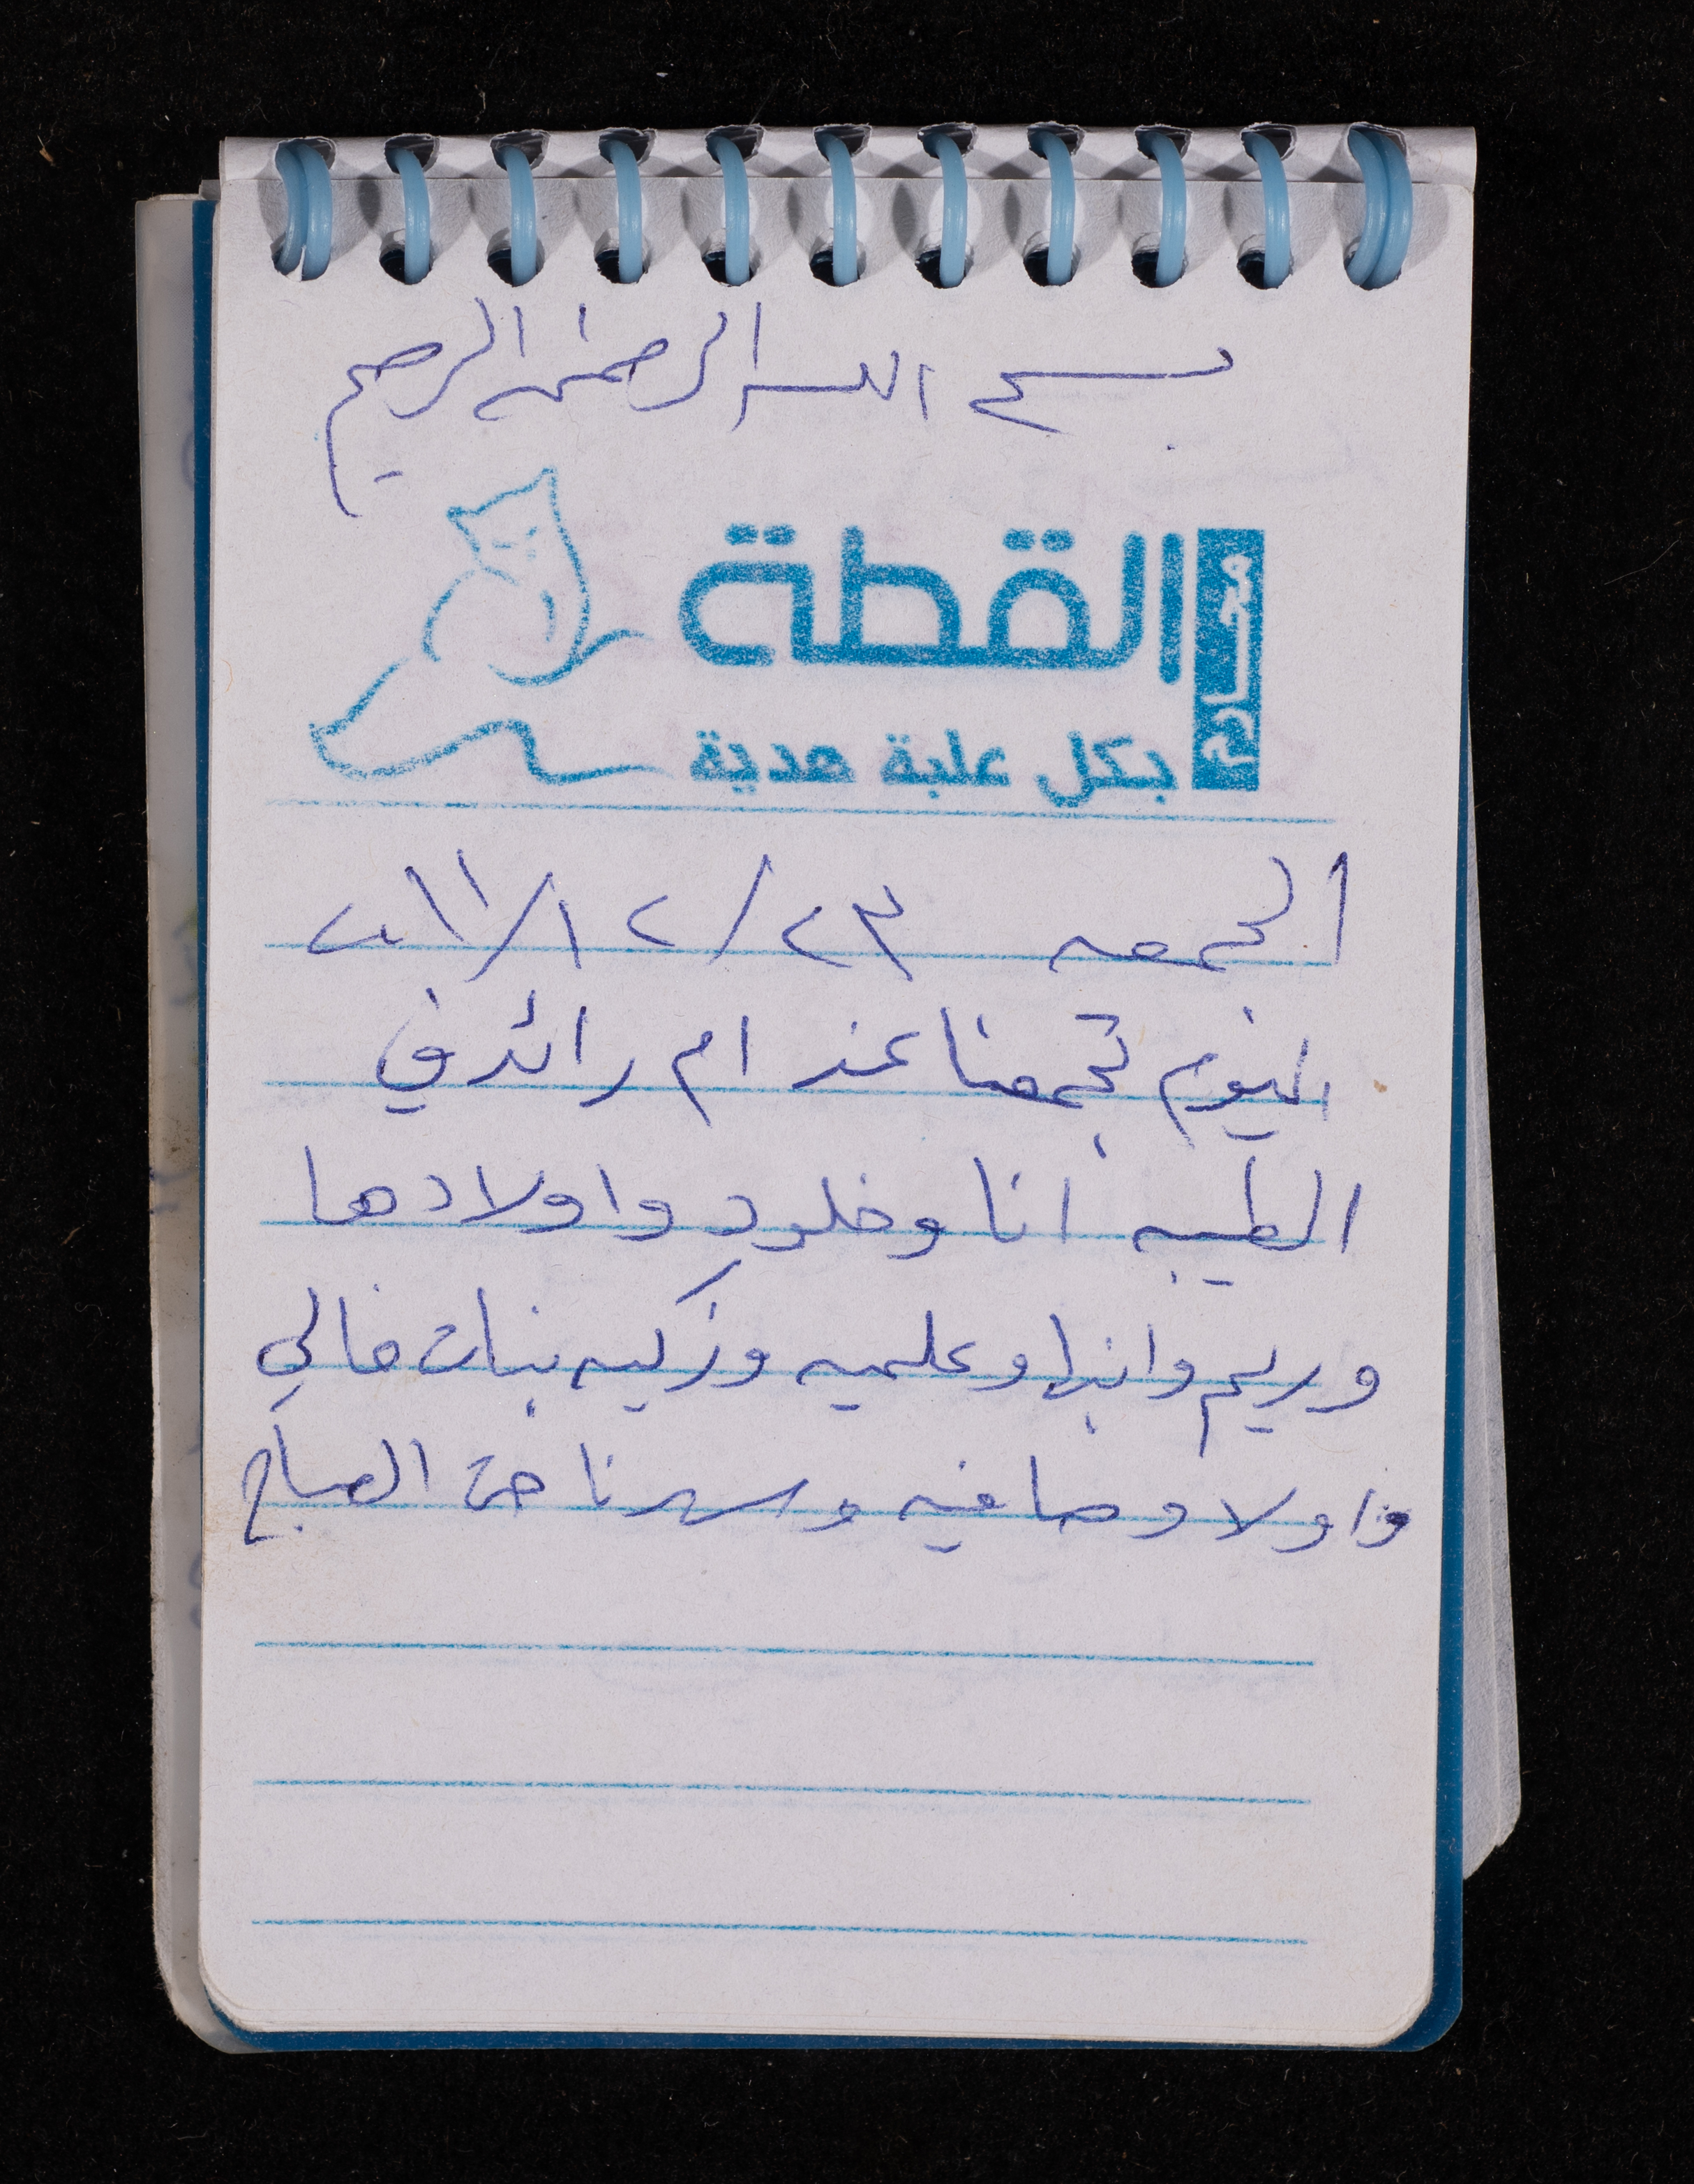 بسم الله الرحمن الرحيم
محارم
القطة
بكل علبة هدية
الجمعه ٢٣/١٢/٢٠١١
اليوم تجمعنا عند ام رائد في
الطيبه انا وخلود واولادها
وريم وابنها وعلميه وزكيه بنات خالي
واولاد صافيه وسهرنا حتى الصباح